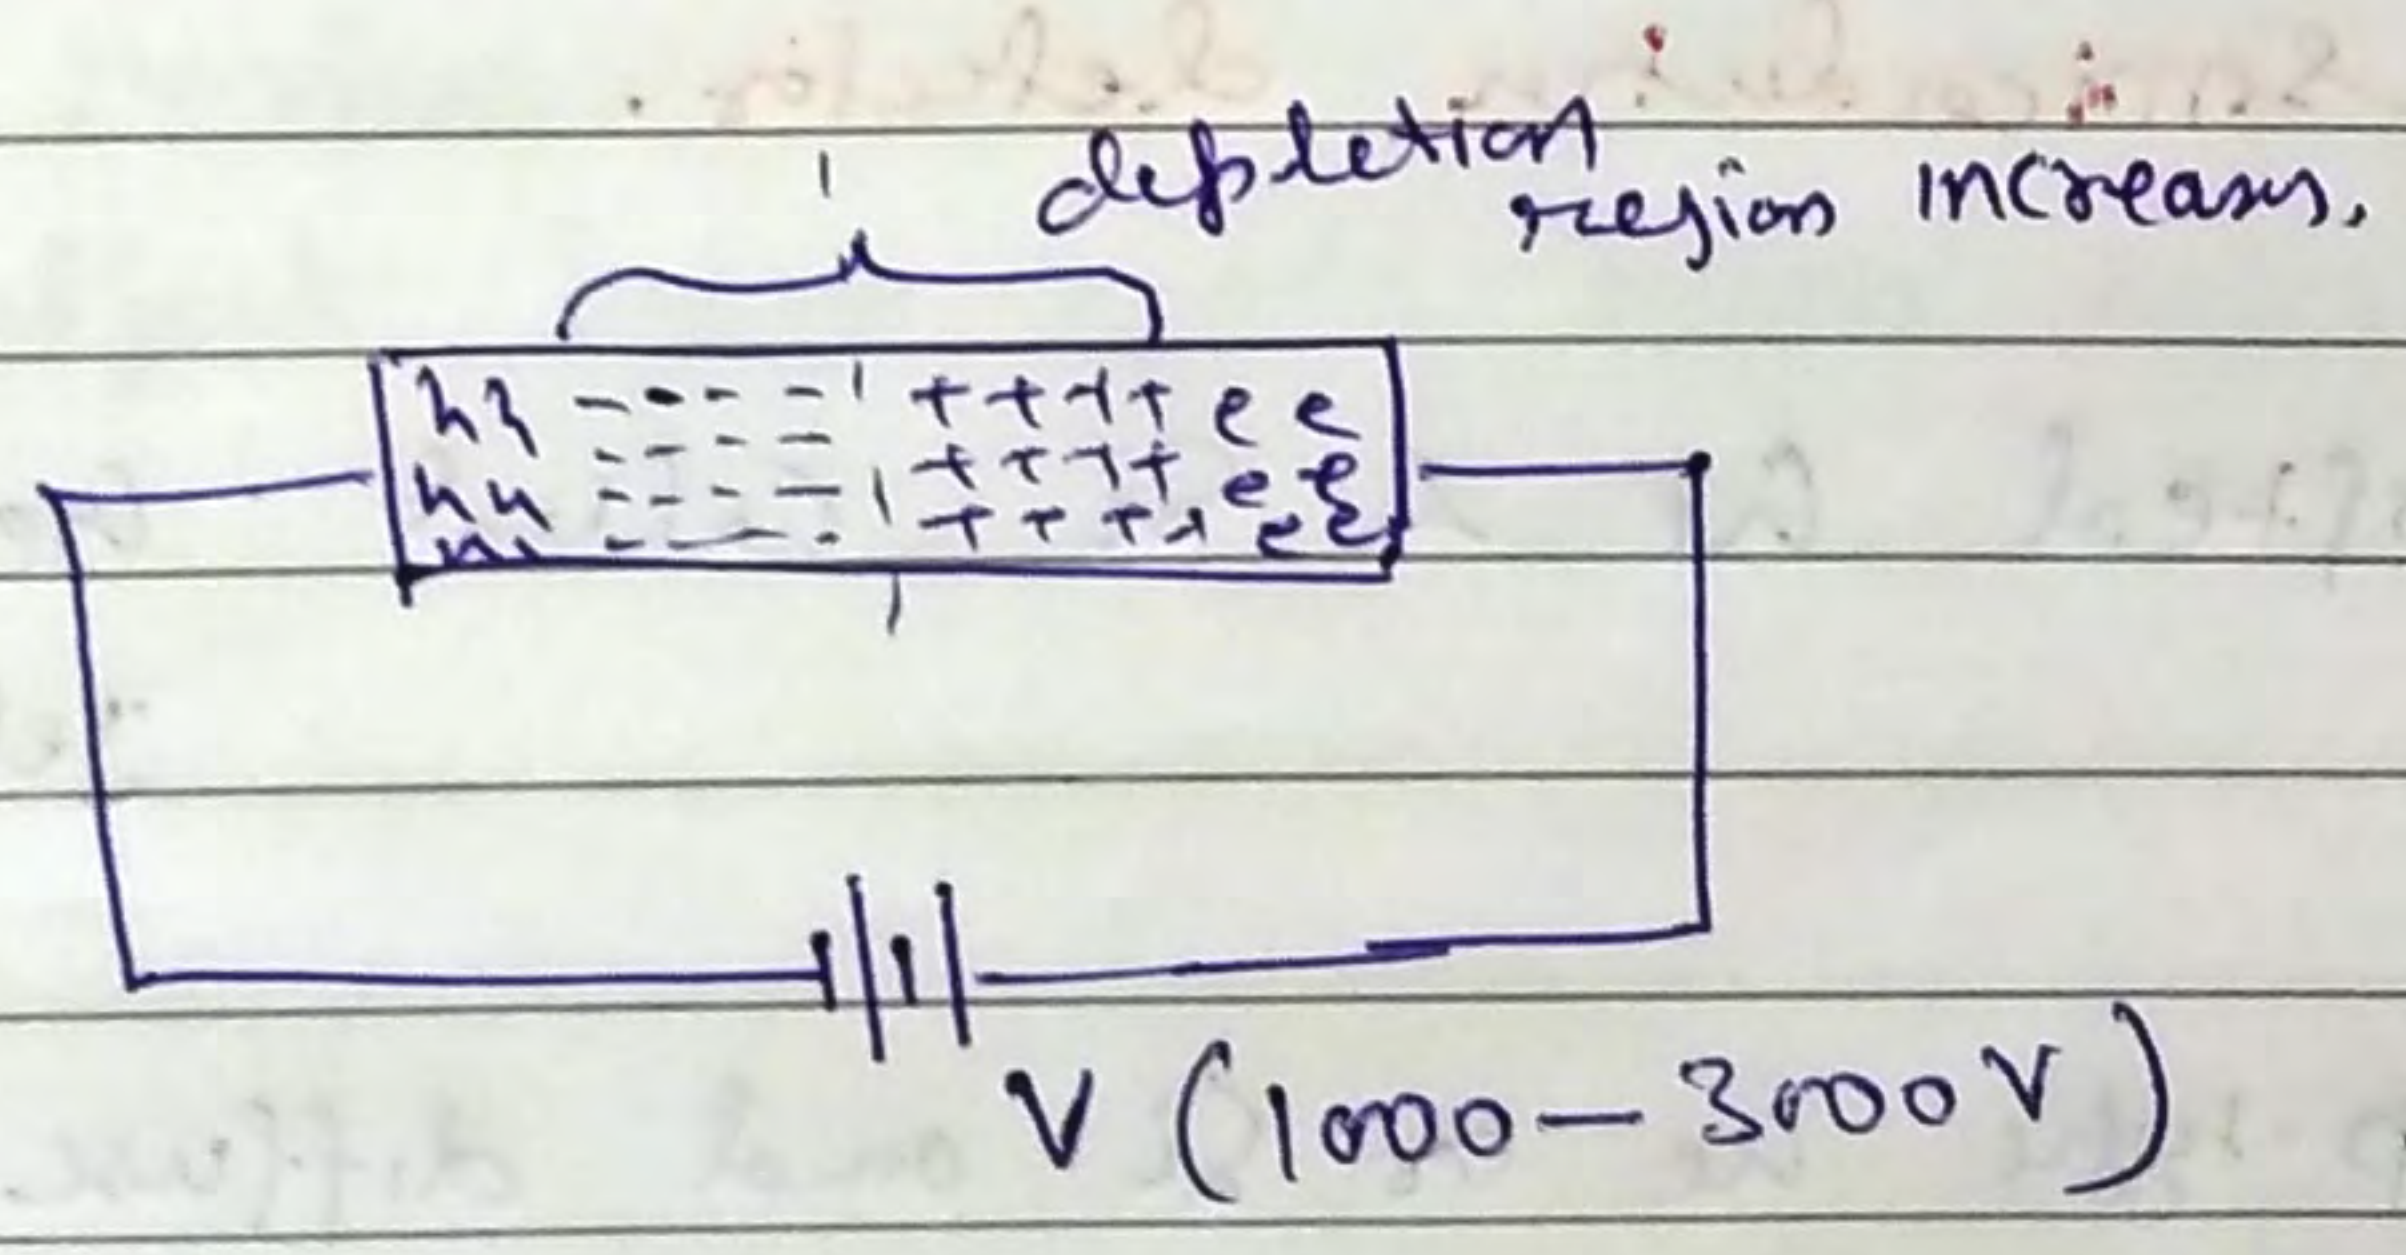 depletion
region increases.
h h - - - - + + + + e e
- - - - + + + +
h h - - - - e e
- - - + + + + e e
V (1000 - 3000 V)